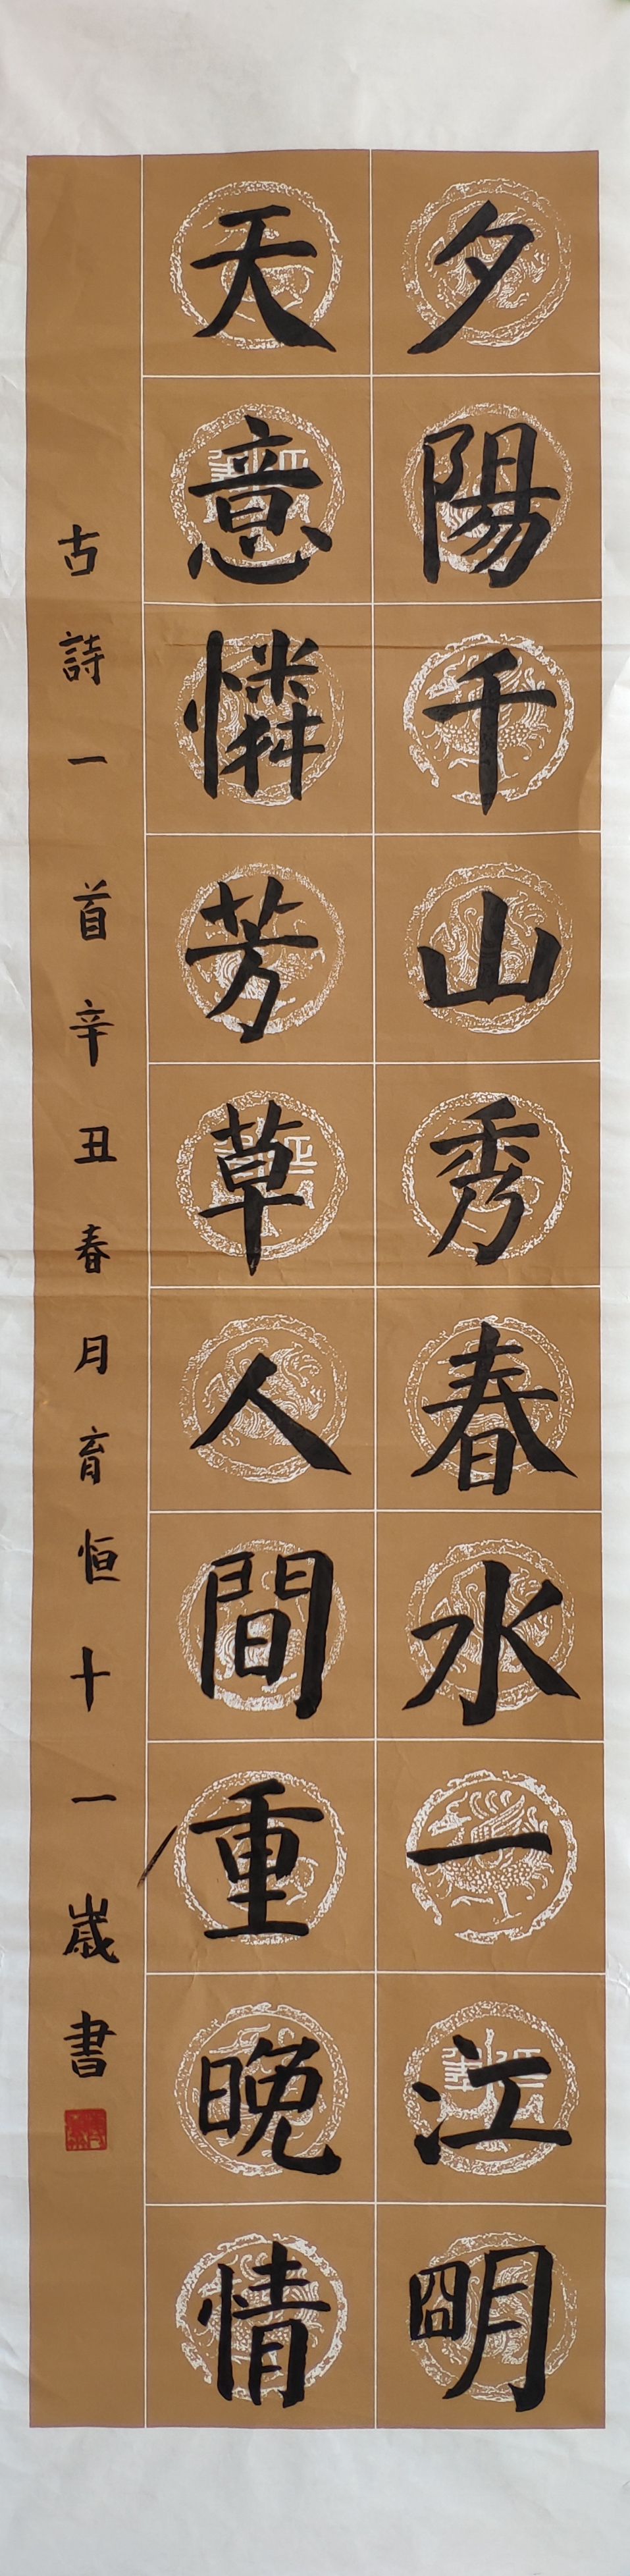 夕陽千山秀春水一江明
天意憐芳草人間重晚情
古詩一首辛丑春月育恒十一歲書